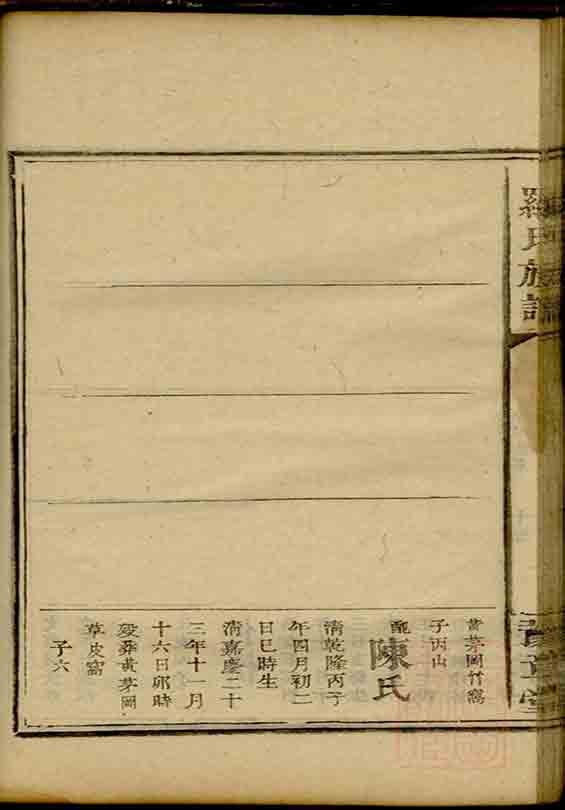 羅氏族譜
黃茅岡竹窩
子丙山
配陳氏
清乾隆丙子
年四月初二
日巳時生
清嘉慶二十
三年十一月
十六日卯時
歿葬黃茅岡
草皮窩
子六